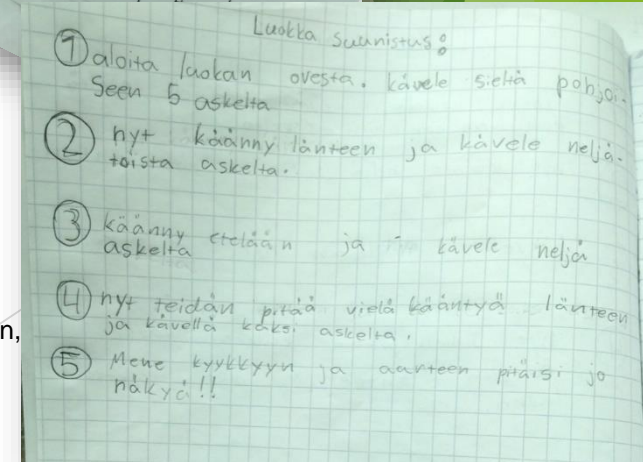 Luokka suunistus:
1 aloita luokan ovesta. kävele sieltä pohjoi-
Seen 5 askelta
2 nyt käänny länteen ja kävele neljä-
toista askelta.
3 käänny etelään ja kävele neljä
askelta
4 nyt teidän pitää vielä kääntyä länteen
ja kävellä kaksi askelta.
n,
5 Mene kyykkyyn ja aarteen pitäisi jo
näkyä!!